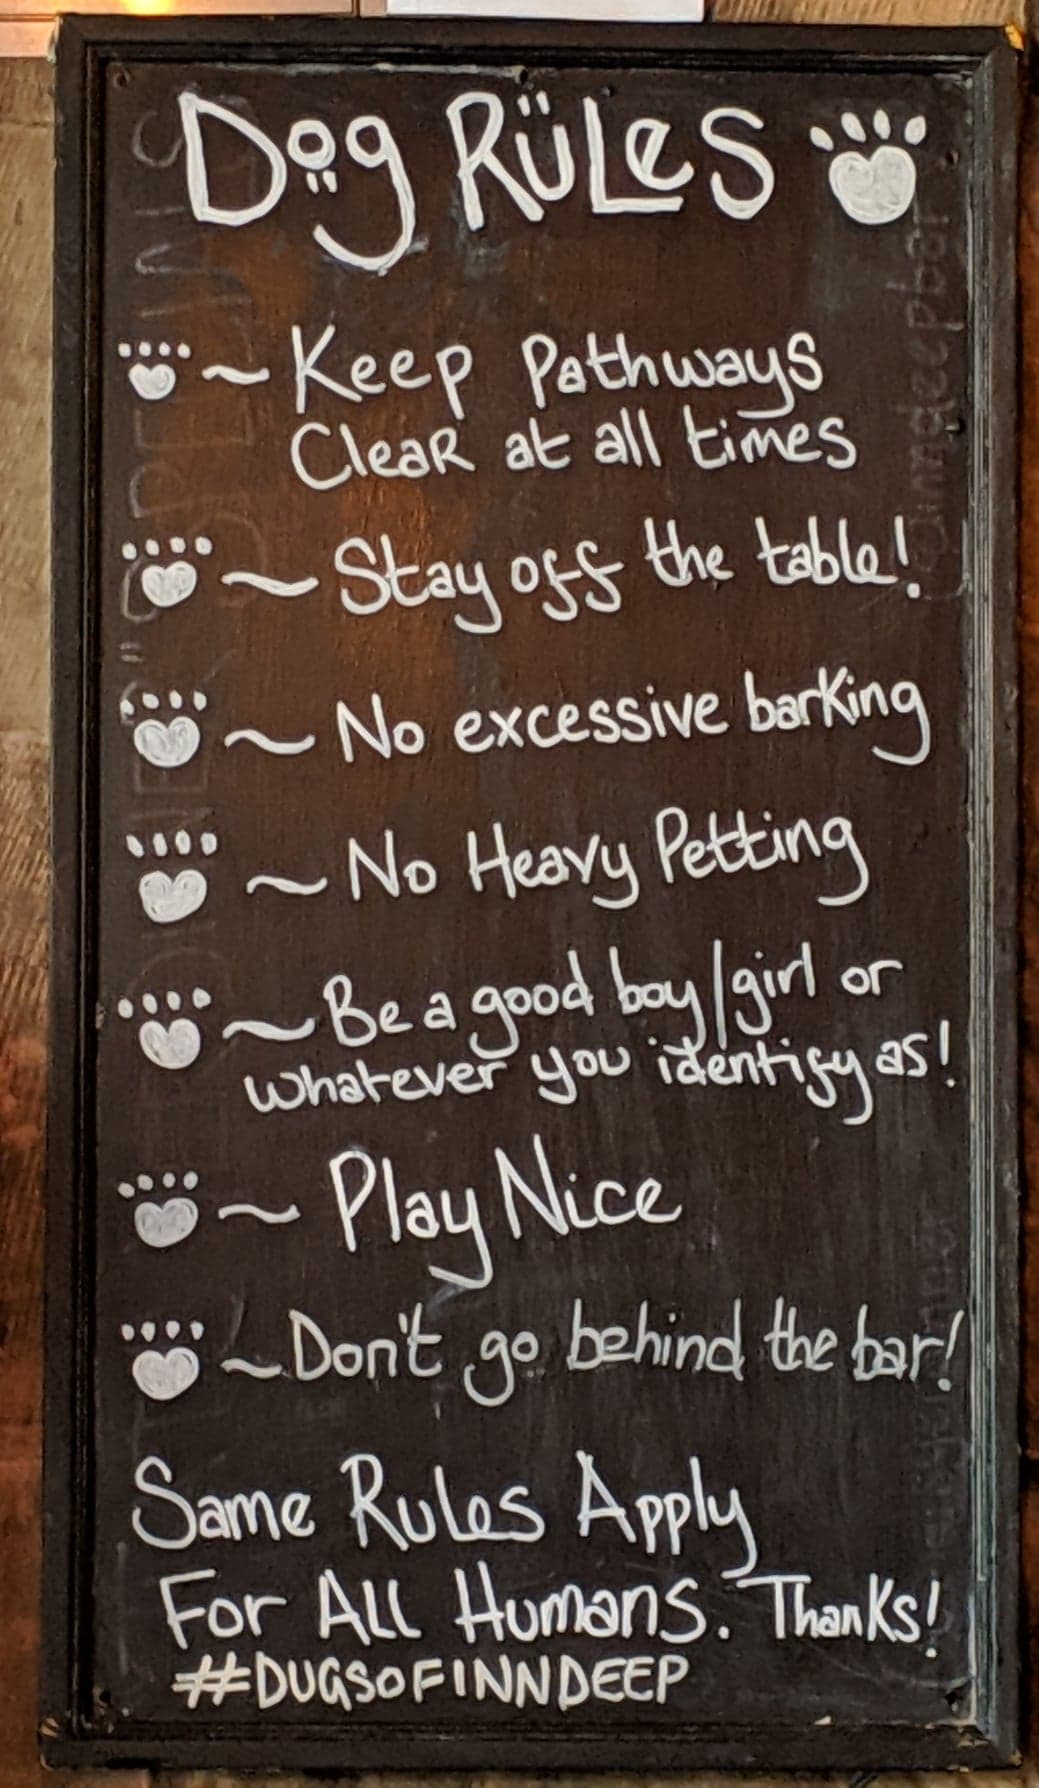 Dog RÜLeS
~ Keep Pathways
CleaR at all times
~ Stay off the table!
~ No excessive barking
~ No Heavy Petting
~ Be a good boy/girl or
whatever you identify as!
~ Play Nice
~ Don't go behind the bar!
Same Rules Apply
For All Humans. Thanks!
#DUGSOFINNDEEP